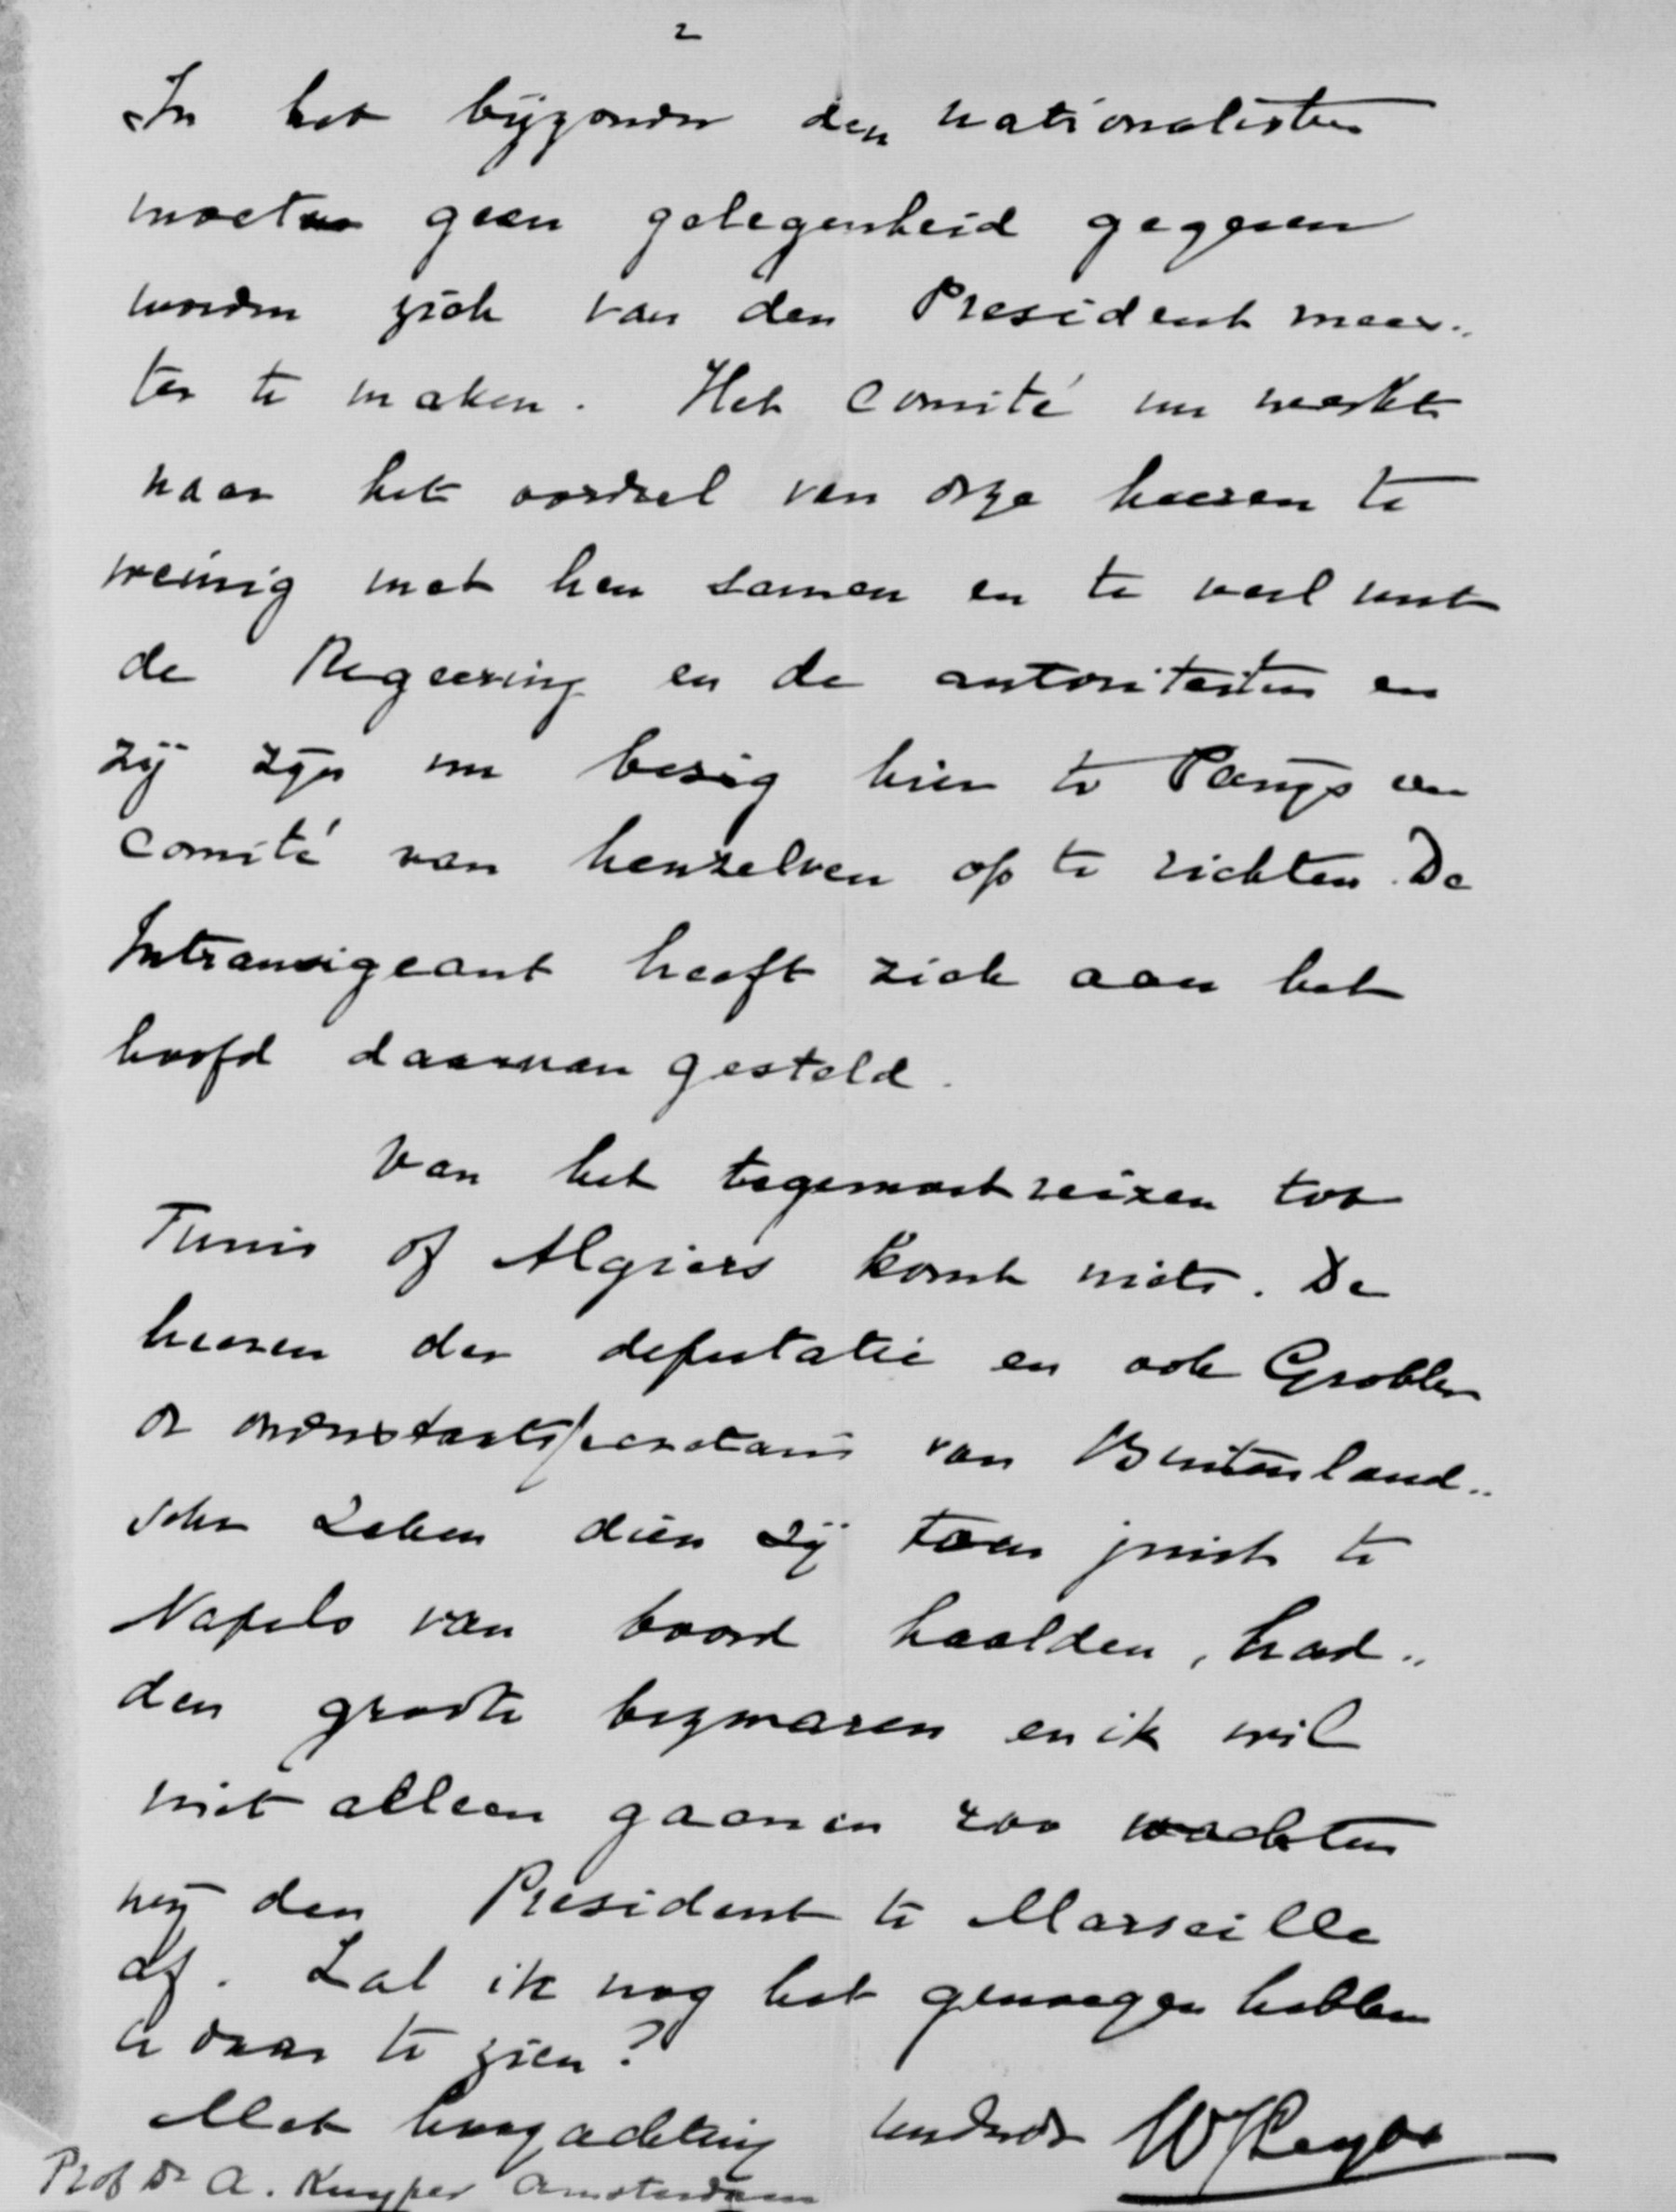 2
In het bijzonder den nationalisten
moeten geen gelegenheid gegeven
worden zich van den President mees..
ter te maken. Het Comité nu werkt
naar het oordeel van onze heeren te
weinig met hen samen en te veel met
de Regeering en de autoriteiten en
zij zijn nu bezig hier te Parijs een
comité van henzelven op te richten. De
Intransigeant heeft zich aan het
hoofd daarvan gesteld.
Van het tegemoetreizen tot
Tunis of Algiers komt niets. De
heeren der deputatie en ook Grobler
de onderstaatssecretaris van Buitenland..
sche Zaken dien zij toen juist te
Napels van boord haalden, had..
den groote bezwaren en ik wil
niet alleen gaan en zoo wachten
wij den President te Marseille
af. Zal ik nog het genoegen hebben
U daar te zien?
Met hoogachting WJLeyds
Prof Dr A. Kuyper Amsterdam